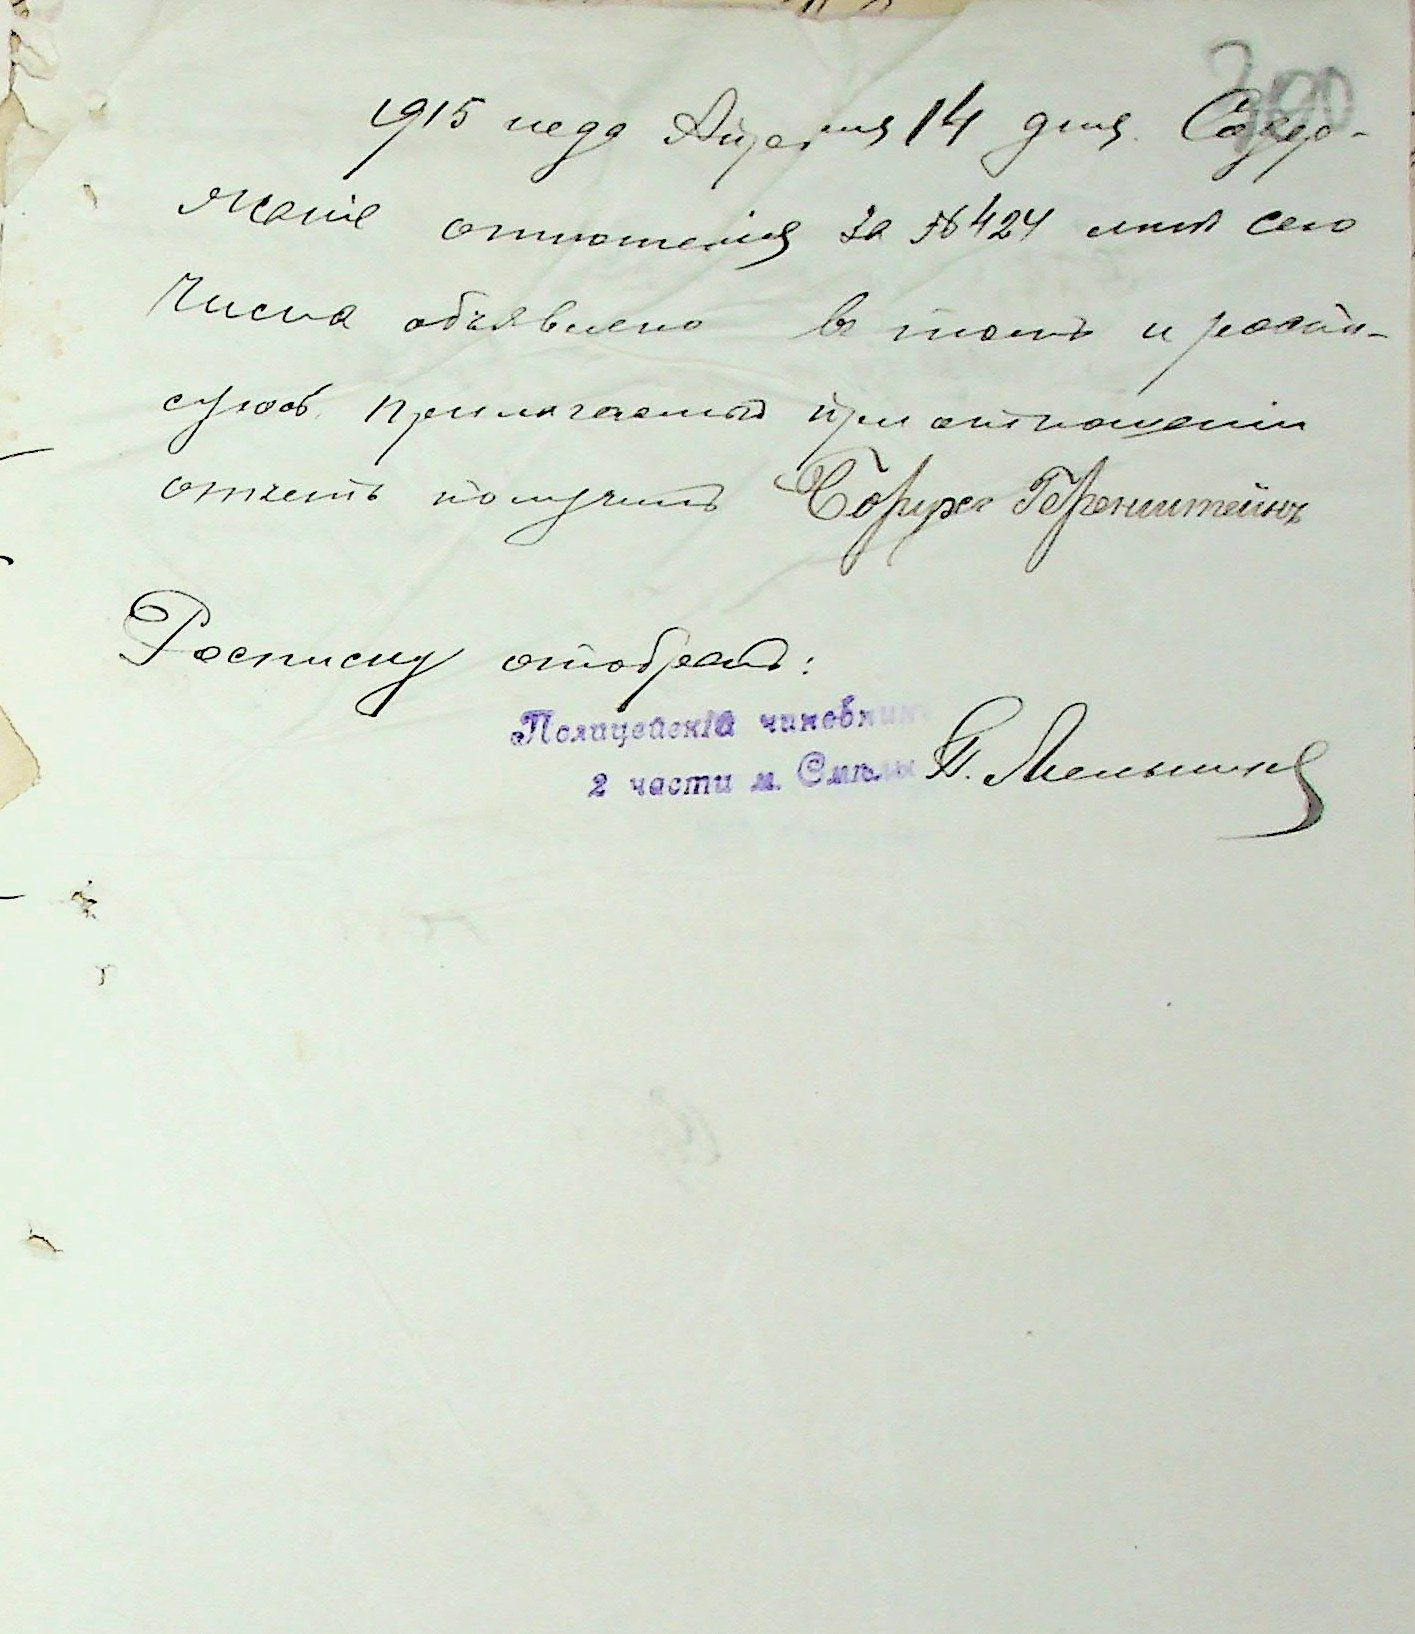 1915 года Апреля 14 дня. Содер-
жаніе отношенія за № 424 мнѣ сего
числа объявлено въ томъ и распи-
суюсь прилагаемый при отношеніи
отчетъ получилъ Борухъ Горенштейнъ
Росписку отобралъ:
Полицейскій чиновникъ
2 части м. Смѣлы